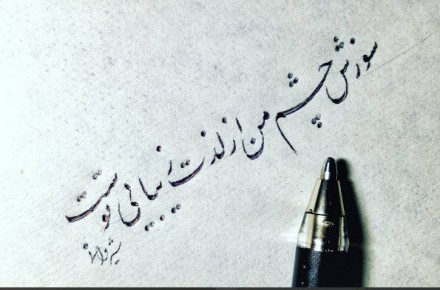 سوزش چشم من از لذت زیبایی توست